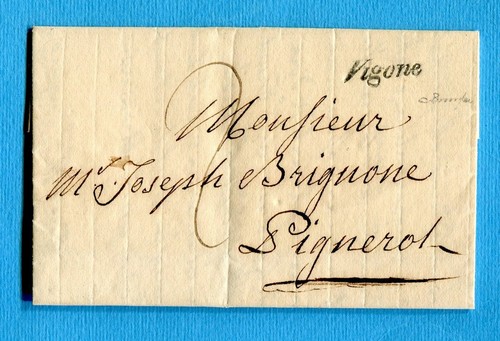 Vigone
Monsieur
Mr. Joseph Brignone
Pignerol